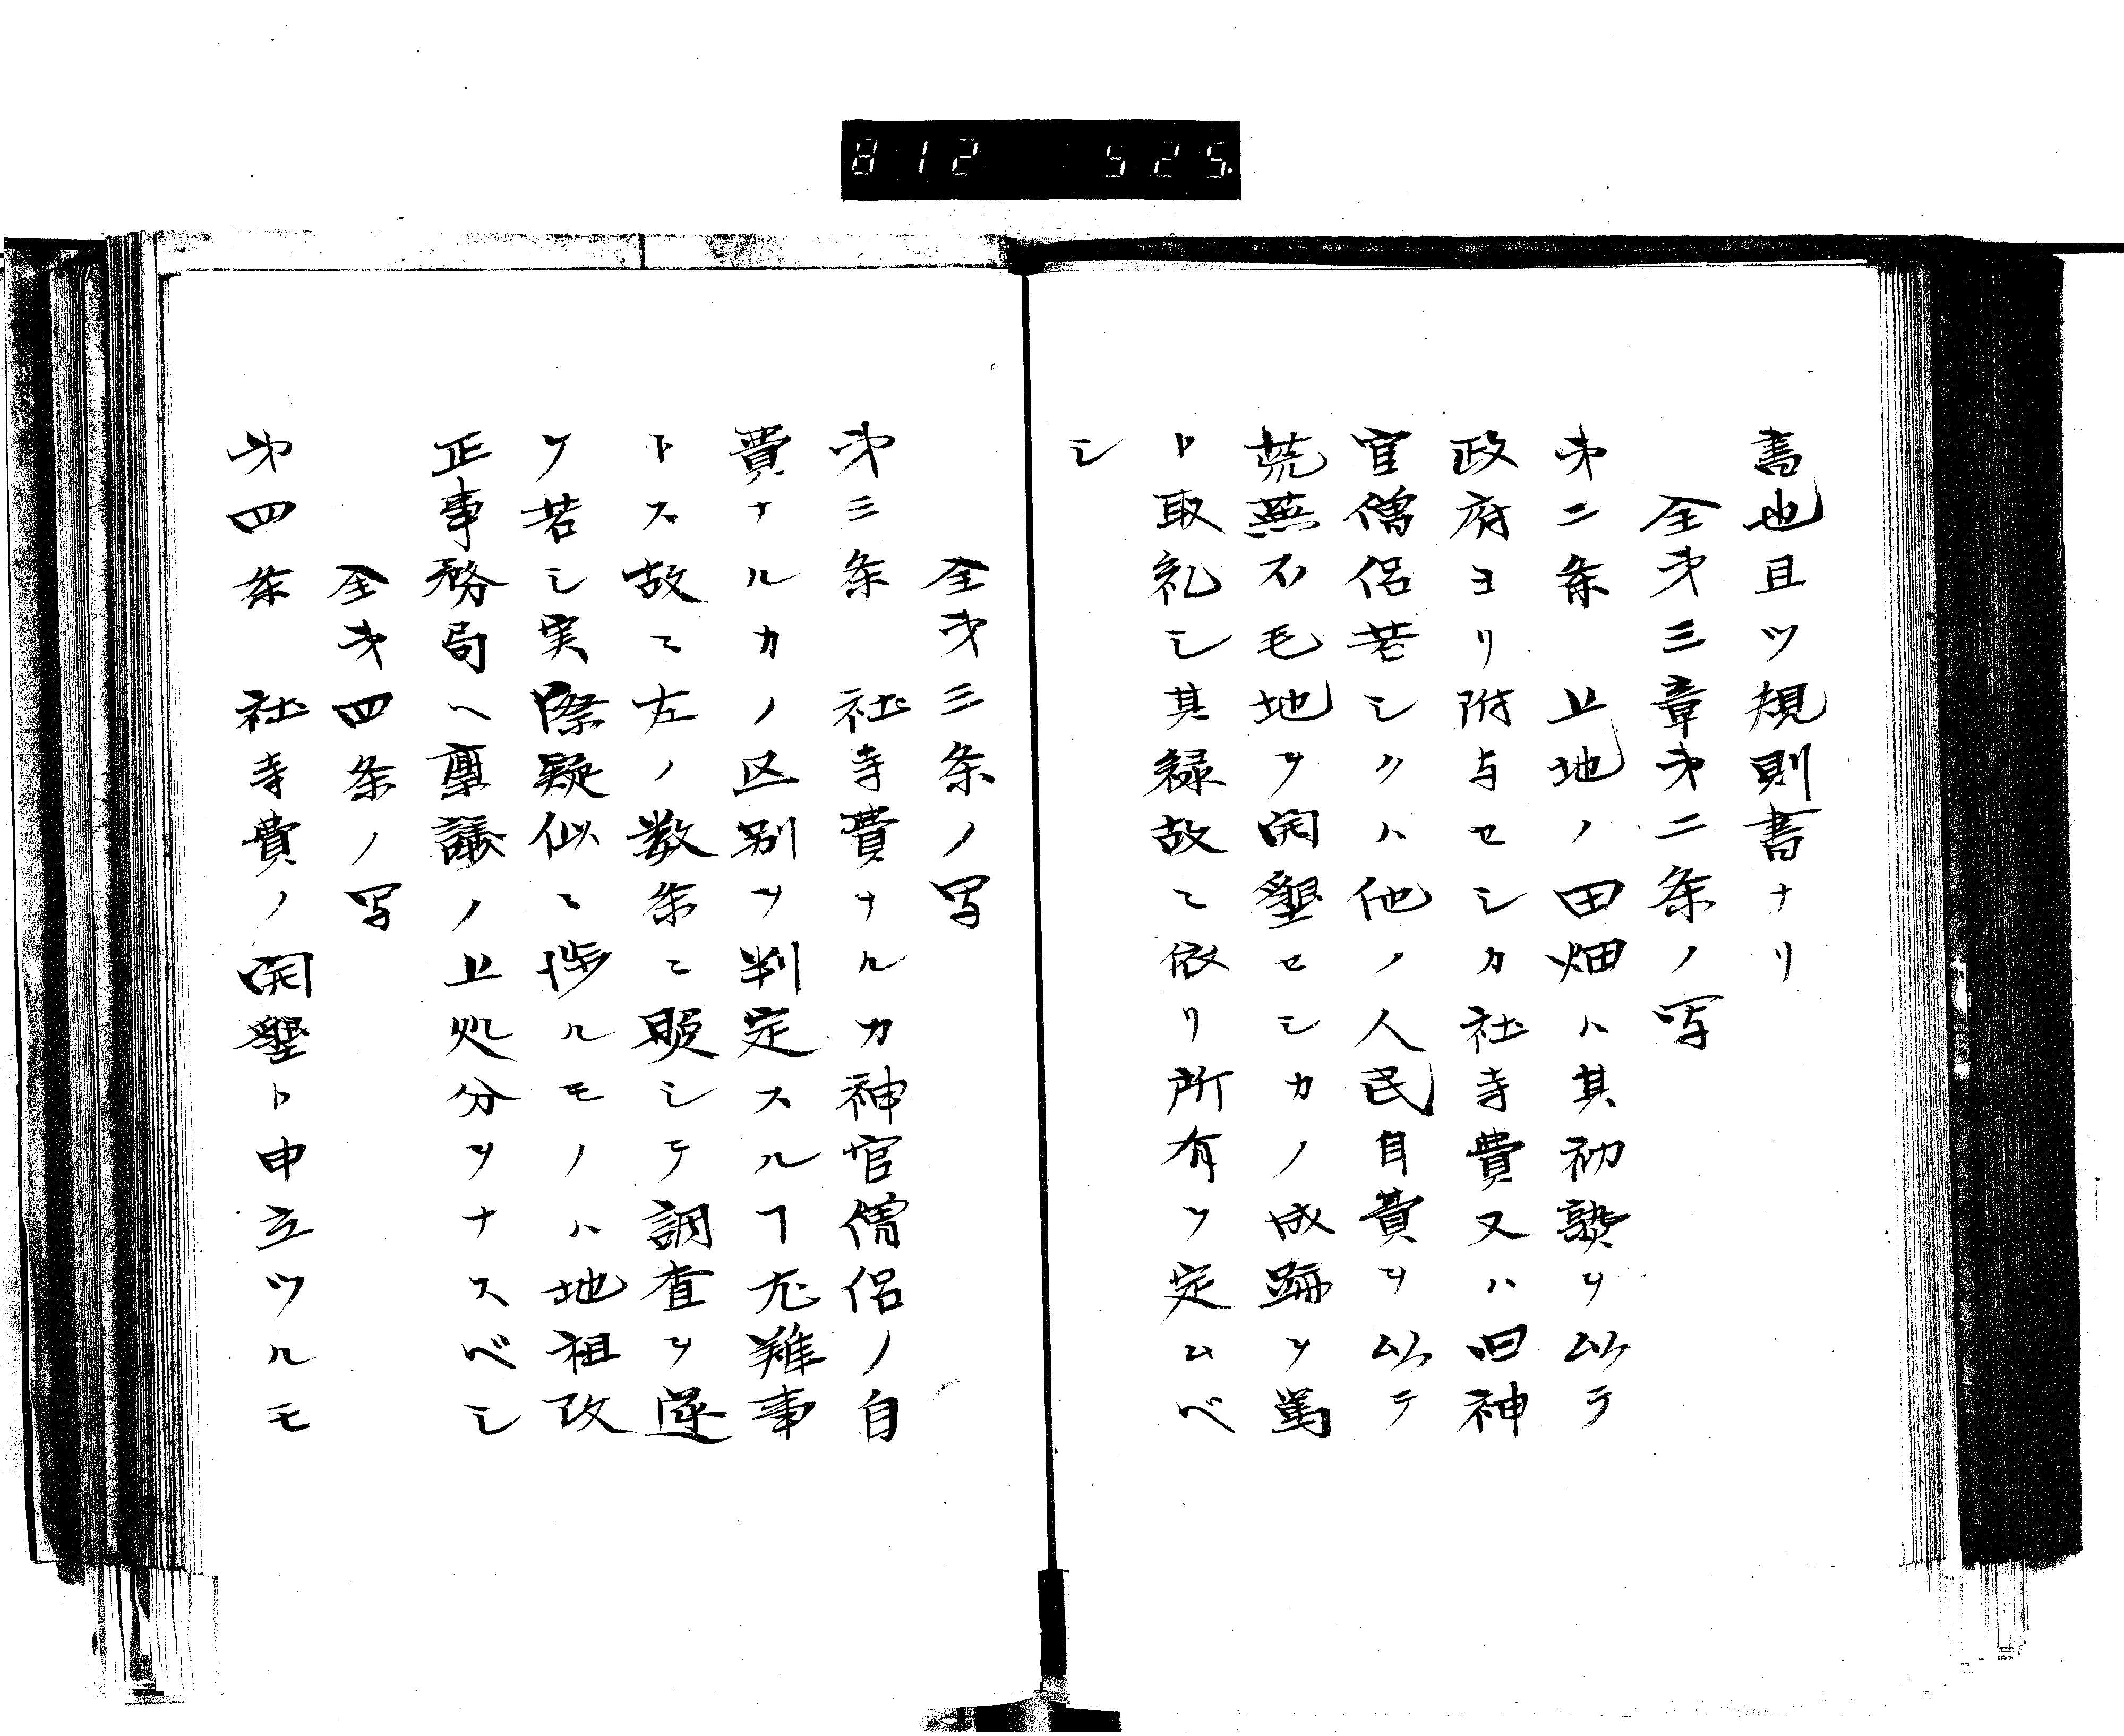 812 525.
書也且ツ規則書ナリ
仝第三章第二条ノ写
第二条 上地ノ田畑ハ其初熟ヲ以テ
政府ヨリ附与セシカ社寺費又ハ旧神
官僧侶若シクハ他ノ人民自費ヲ以テ
荒蕪不毛地ヲ開墾セシカノ成跡ヲ篤
ト取礼シ其縁故ニ依リ所有ヲ定ムベ
シ
仝第三条ノ写
第三条 社寺費ナルカ神官僧侶ノ自
費ナルカノ区別ヲ判定スルヿ尤難事
トス故ニ左ノ数条ニ照シテ調査ヲ遂
ケ若シ実際疑似ニ渉ルモノハ地祖改
正事務局ヘ稟議ノ上処分ヲナスベシ
仝第四条ノ写
第四条 社寺費ノ開墾ト申立ツルモ